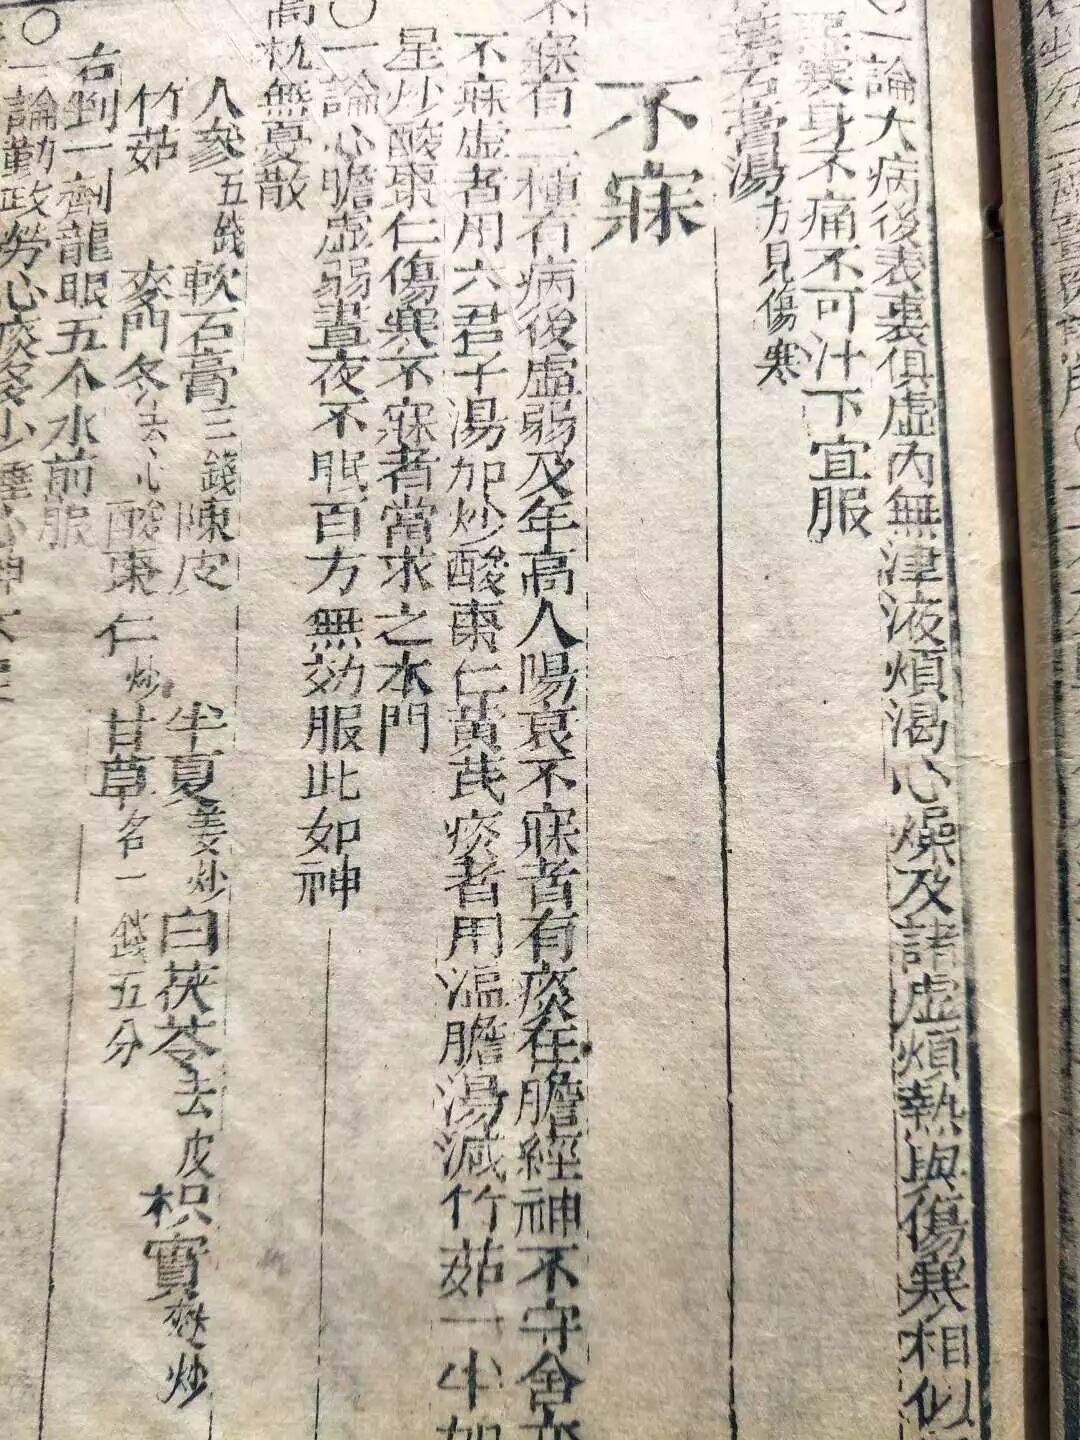 〇一論大病後表裏俱虛內無津液煩渴心燥及諸虛煩熱與傷寒相似
惡寒身不痛不可汁下宜服
葉石膏湯方見傷寒
不寐
不寐有二種有病後虛弱及年高人陽衰不寐者有痰在膽經神不守舍
不寐虛者用六君子湯加炒酸棗仁黃芪痰者用溫膽湯減竹茹一半加
星炒酸棗仁傷寒不寐者當求之本門
〇一論心膽虛弱晝夜不眠百方無効服此如神
高枕無憂散
人參五錢 軟石膏三錢 陳皮 半夏姜炒 白茯苓去皮 枳實麩炒
竹茹 麥門冬去心 酸棗仁炒 甘草各一錢五分
右剉一劑龍眼五个水前服
〇一論勤政勞心痰多少睡心神不